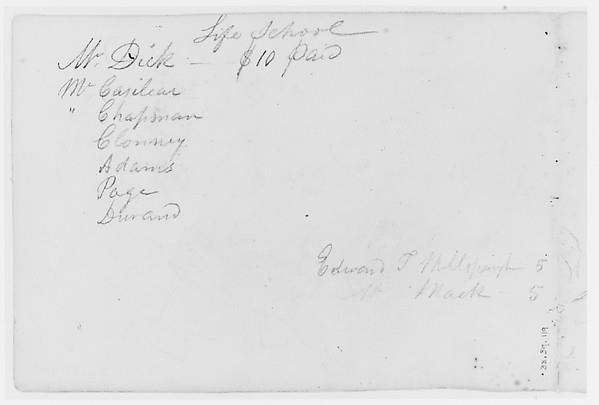 Life School
Mr. Dick — $10 Paid
Mr Casilear
" Chapman
Clonney
Adams
Page
Durand
Edward T Millspaugh 5
Mack - 5
33.39.119